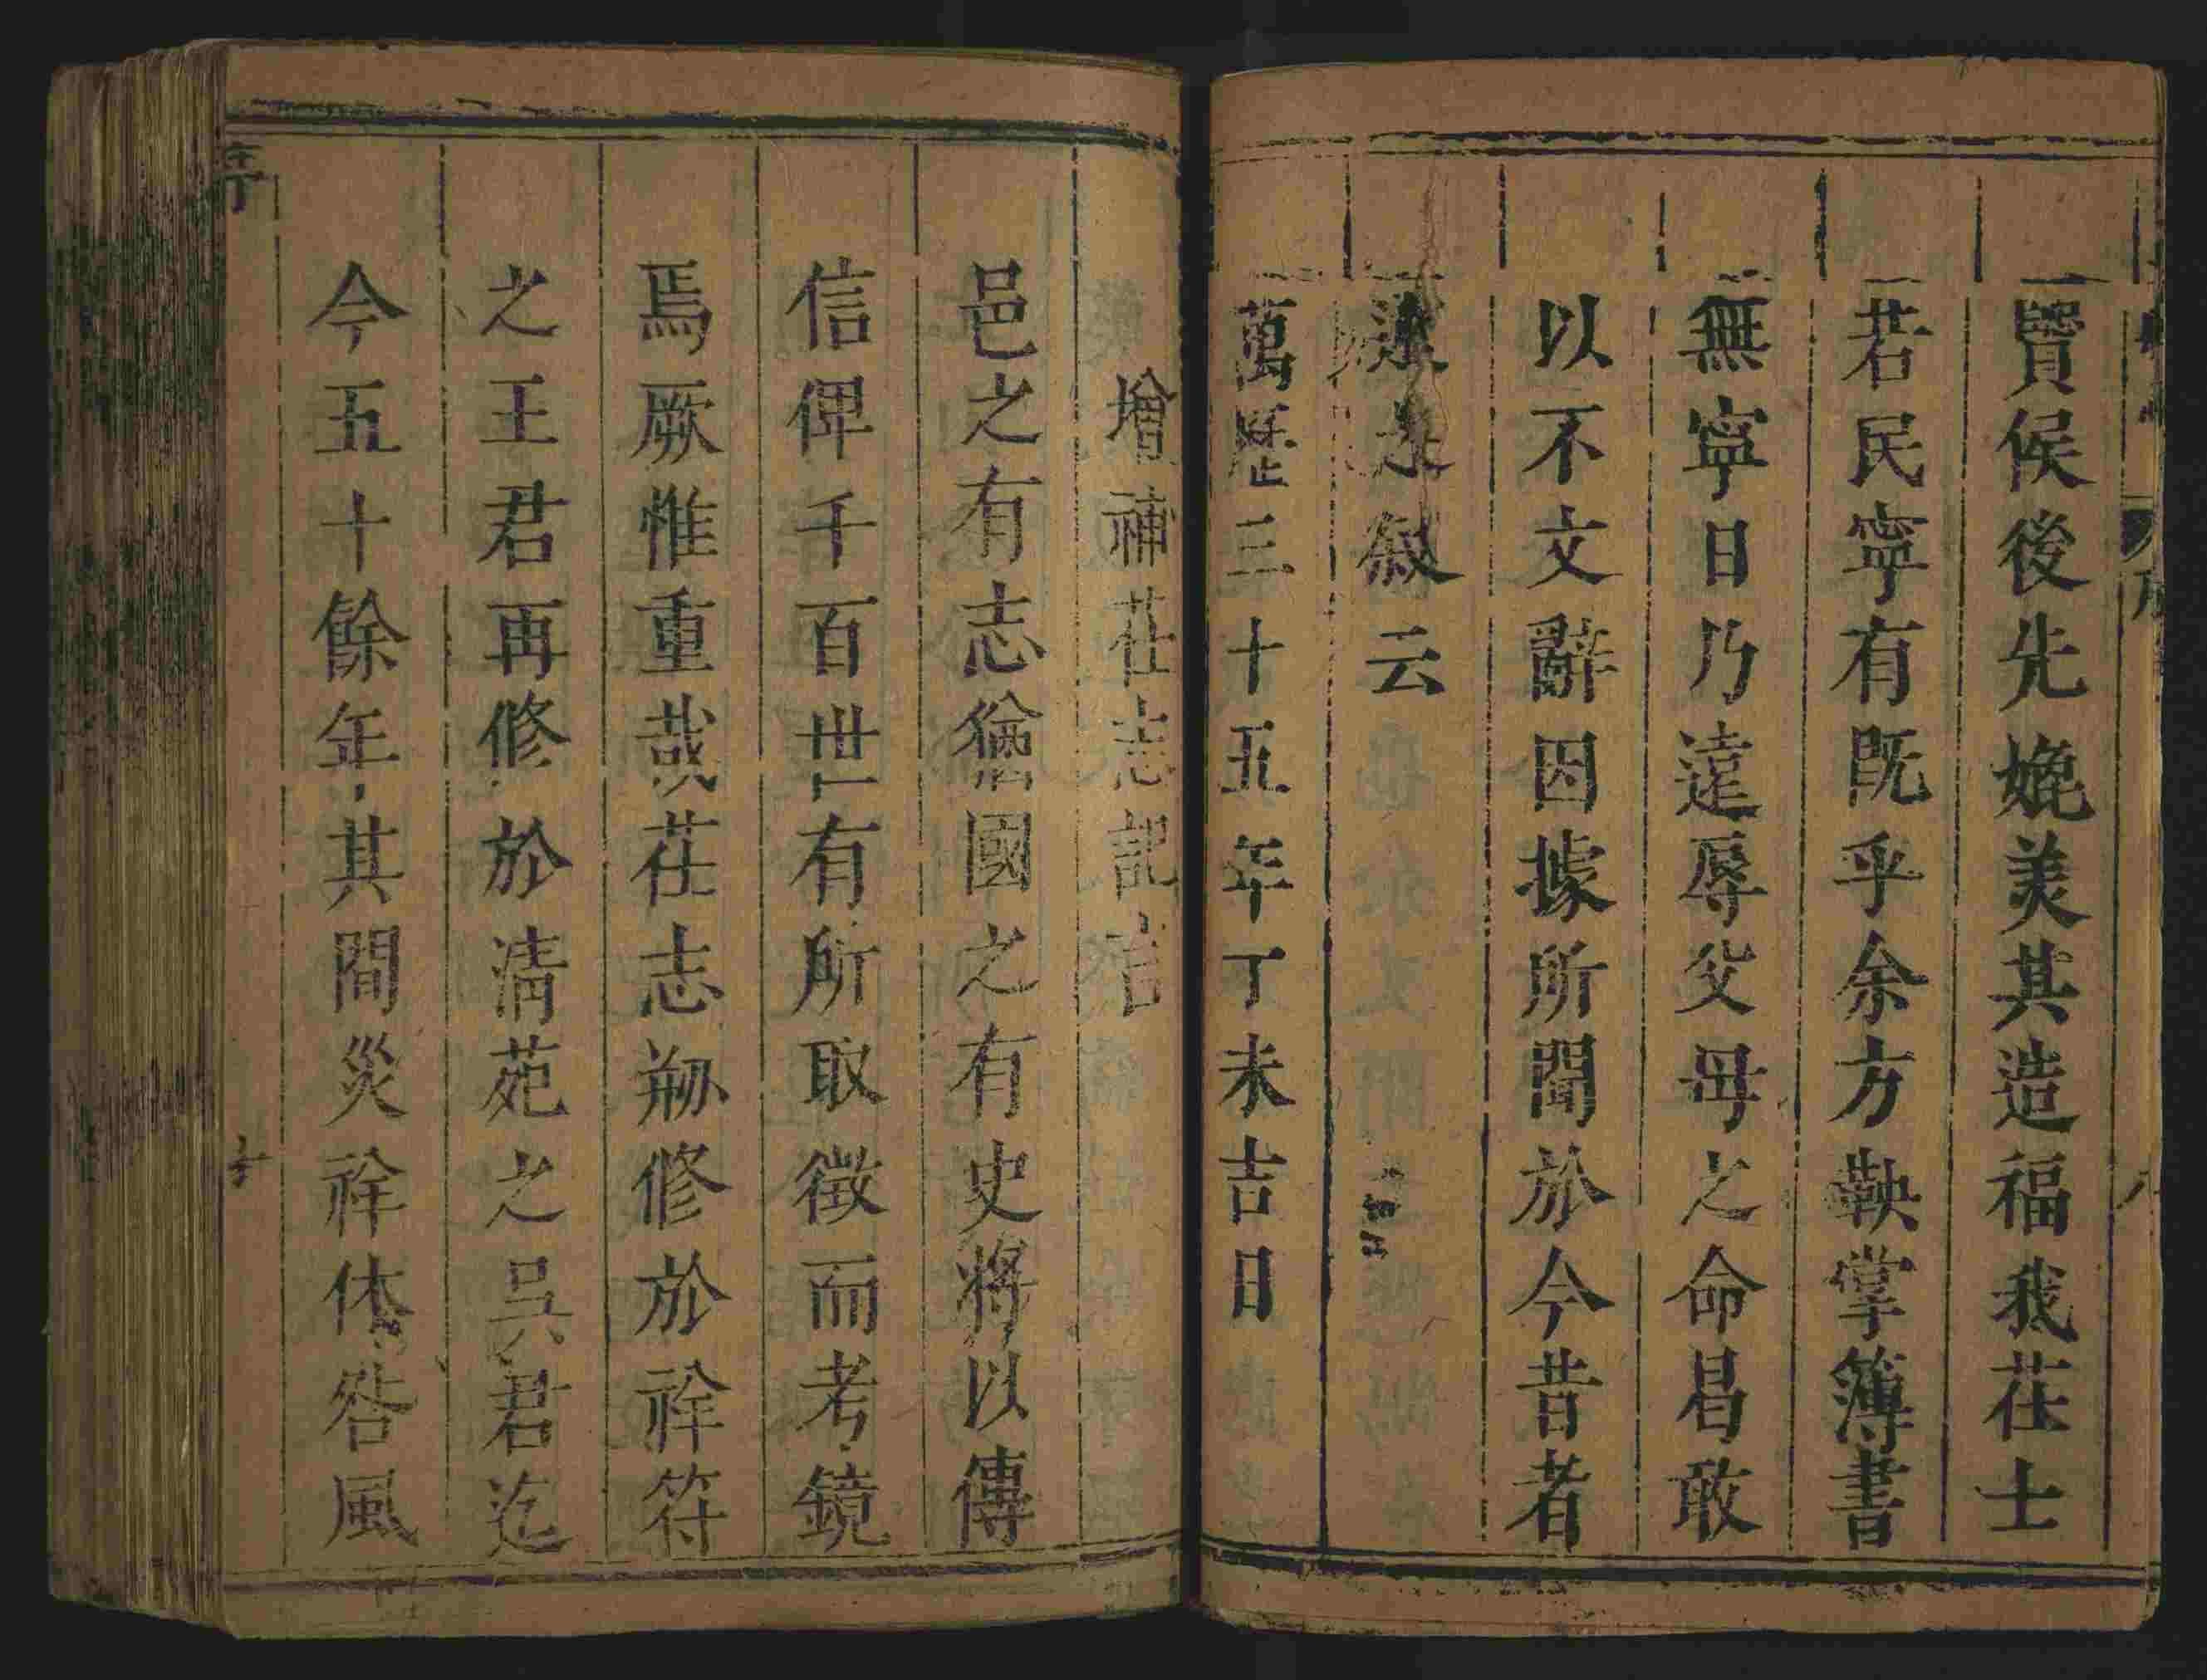 賢侯後先媲美其造福我茌士
若民寧有既乎余方鞅掌簿書
無寧日乃遠辱父母之命曷敢
以不文辭因據所聞於今昔者
叙云
萬曆三十五年丁未吉日
增補茌志記言
邑之有志猶國之有史將以傳
信俾千百世有所取徵而考鏡
焉厥惟重哉茌志剏修於祥符
之王君再修於清苑之吳君迄
今五十餘年其間災祥休咎風
序